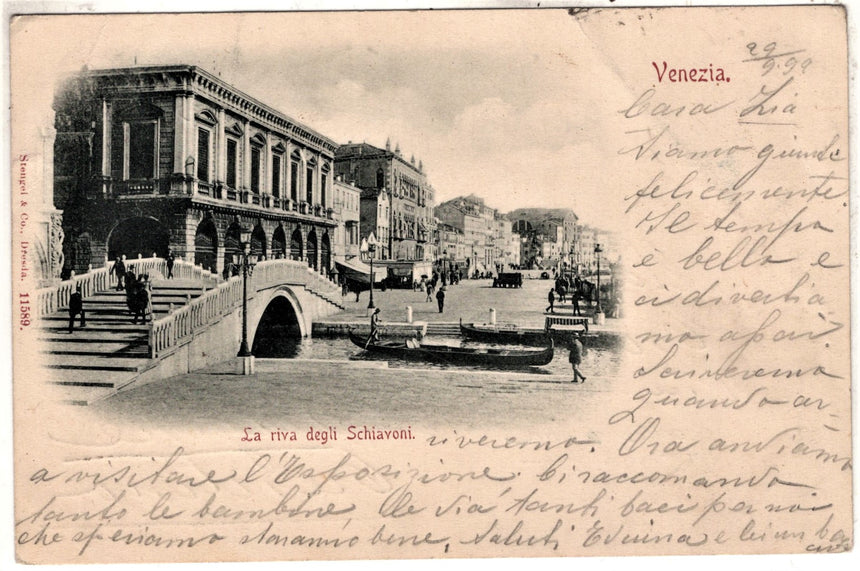 Venezia.
29
9.99
Cara Zia
Siamo giunte
felicemente.
Il tempo
è bello e
ci divertia
mo assai
Scriveremo
Quando ar-
La riva degli Schiavoni.
riveremo. Ora andiamo
a visitare l'Esposizione. Ci raccomando
tanto le bambine. Le dia tanti baci per noi
che speriamo staranno bene. Saluti e
Stengel & Co., Dresda. 11589.